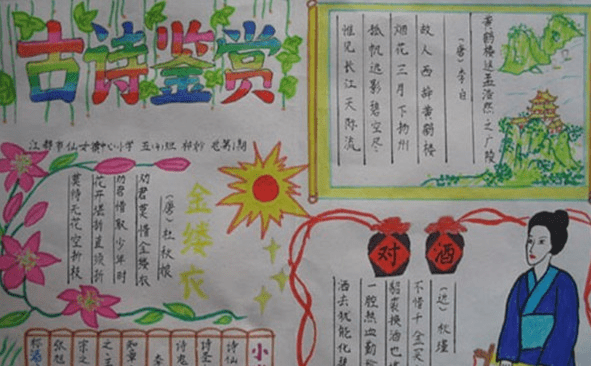 古诗鉴赏
黄鹤楼送孟浩然之广陵
(唐)李白
故人西辞黄鹤楼
烟花三月下扬州
孤帆远影碧空尽
惟见长江天际流
金缕衣
(唐)杜秋娘
劝君莫惜金缕衣
劝君惜取少年时
花开堪折直须折
莫待无花空折枝
对酒
(近)秋瑾
不惜千金买
貂裘换酒也
一腔热血勤
洒去犹能化碧
小
诗仙
诗圣
诗鬼
知章
宗之
张旭